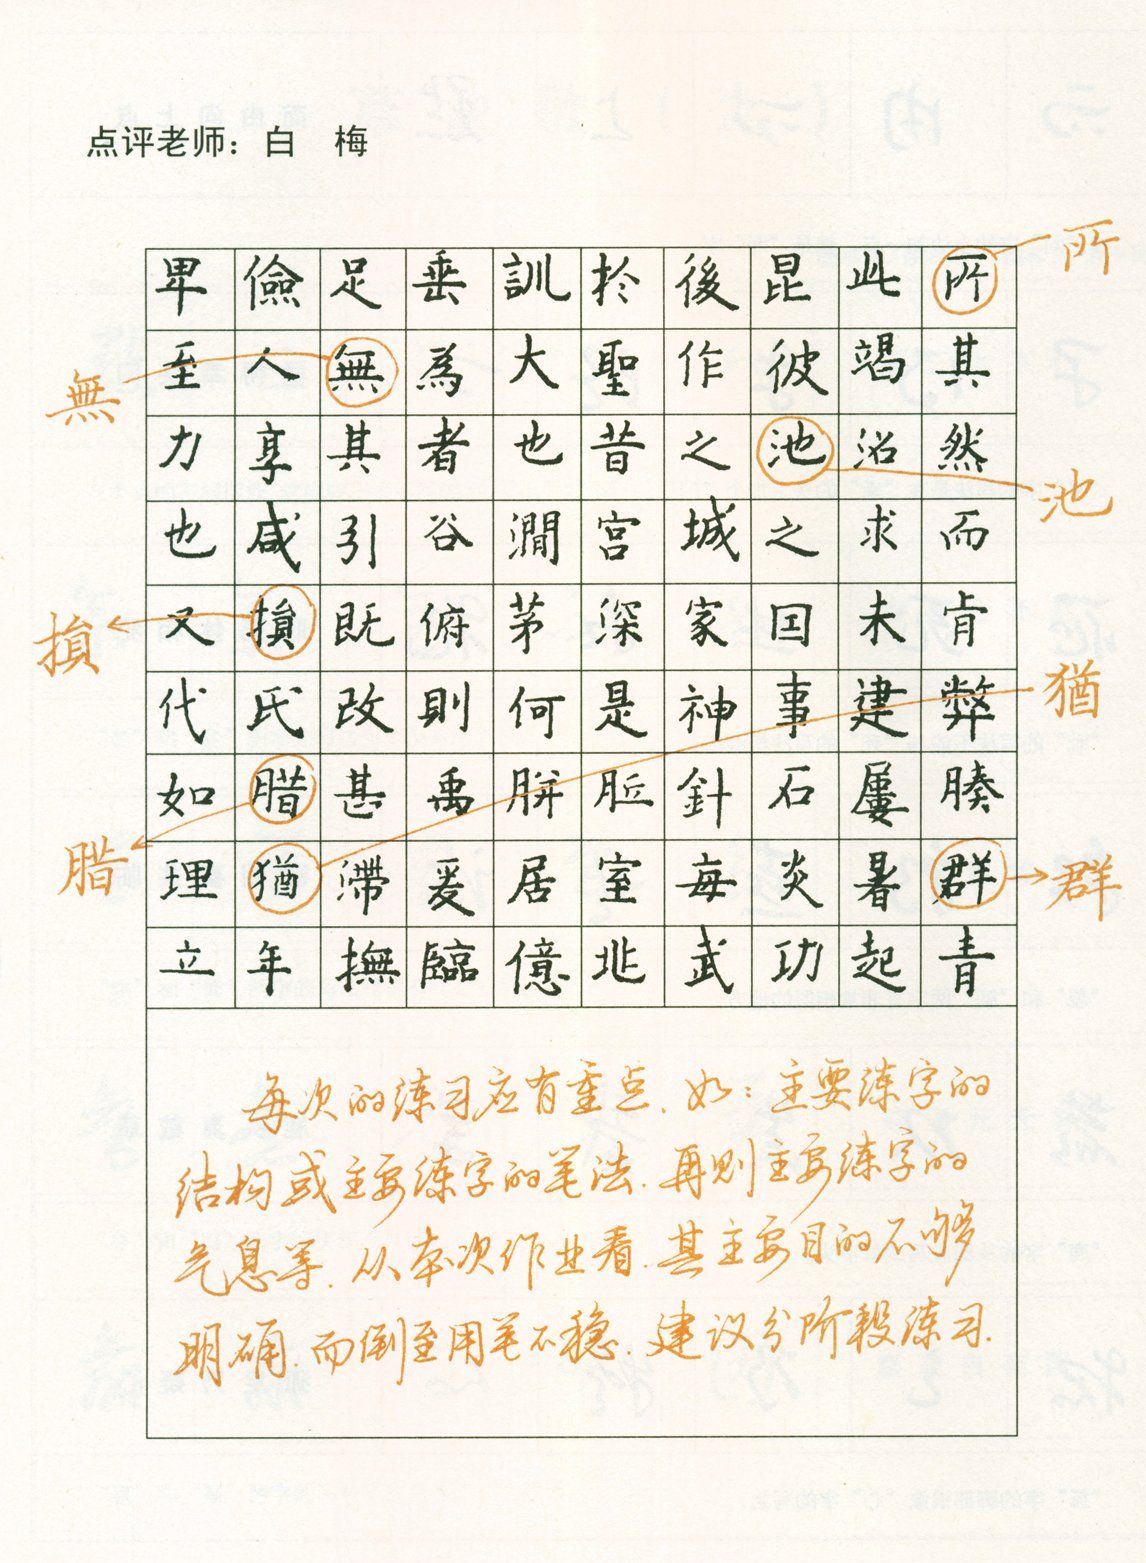 点评老师：白　梅
卑儉足垂訓於後昆此所
所
至人無為大聖作彼竭其
無
力享其者也昔之池沼然
池
也咸引谷澗宮城之求而
又損既俯茅深家囯未肯
損
代氏改則何是神事建弊
猶
如腊甚禹胼胝針石屢腠
腊
理猶滯爰居室每炎暑群
群
立年撫臨億兆武功起青
每次的练习应有重点.如:主要练字的
结构或主要练字的笔法.再则主要练字的
气息等.从本次作业看.其主要目的不够
明确.而倒至用笔不稳.建议分阶段练习.